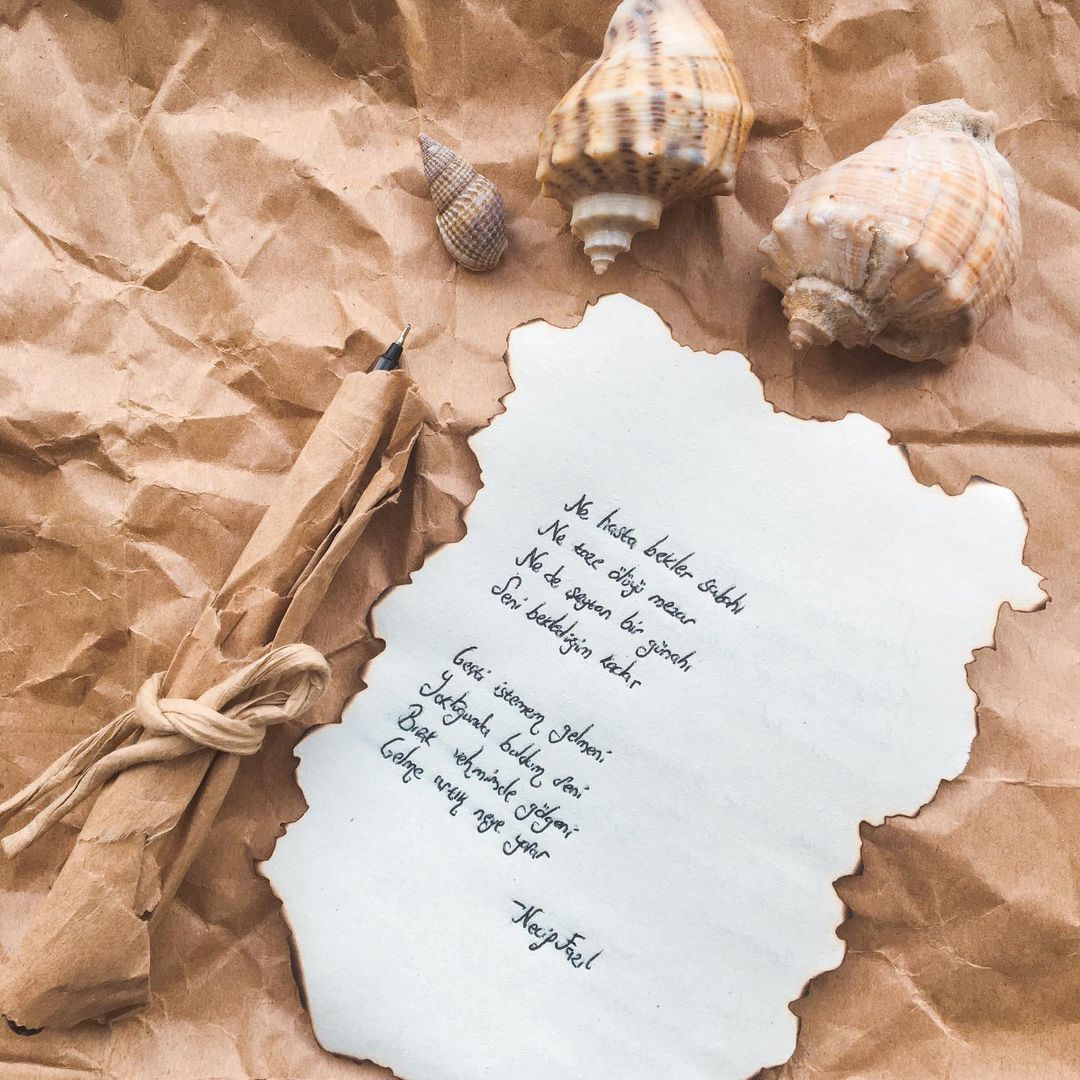 Ne hasta bekler sabahı
Ne taze ölüyü mezar
Ne de şeytan bir günahı
Seni beklediğim kadar
Geçti istemem gelmeni
Yokluğunda buldum seni
Bırak vehmimde gölgeni
Gelme artık neye yarar
-Necip Fazıl